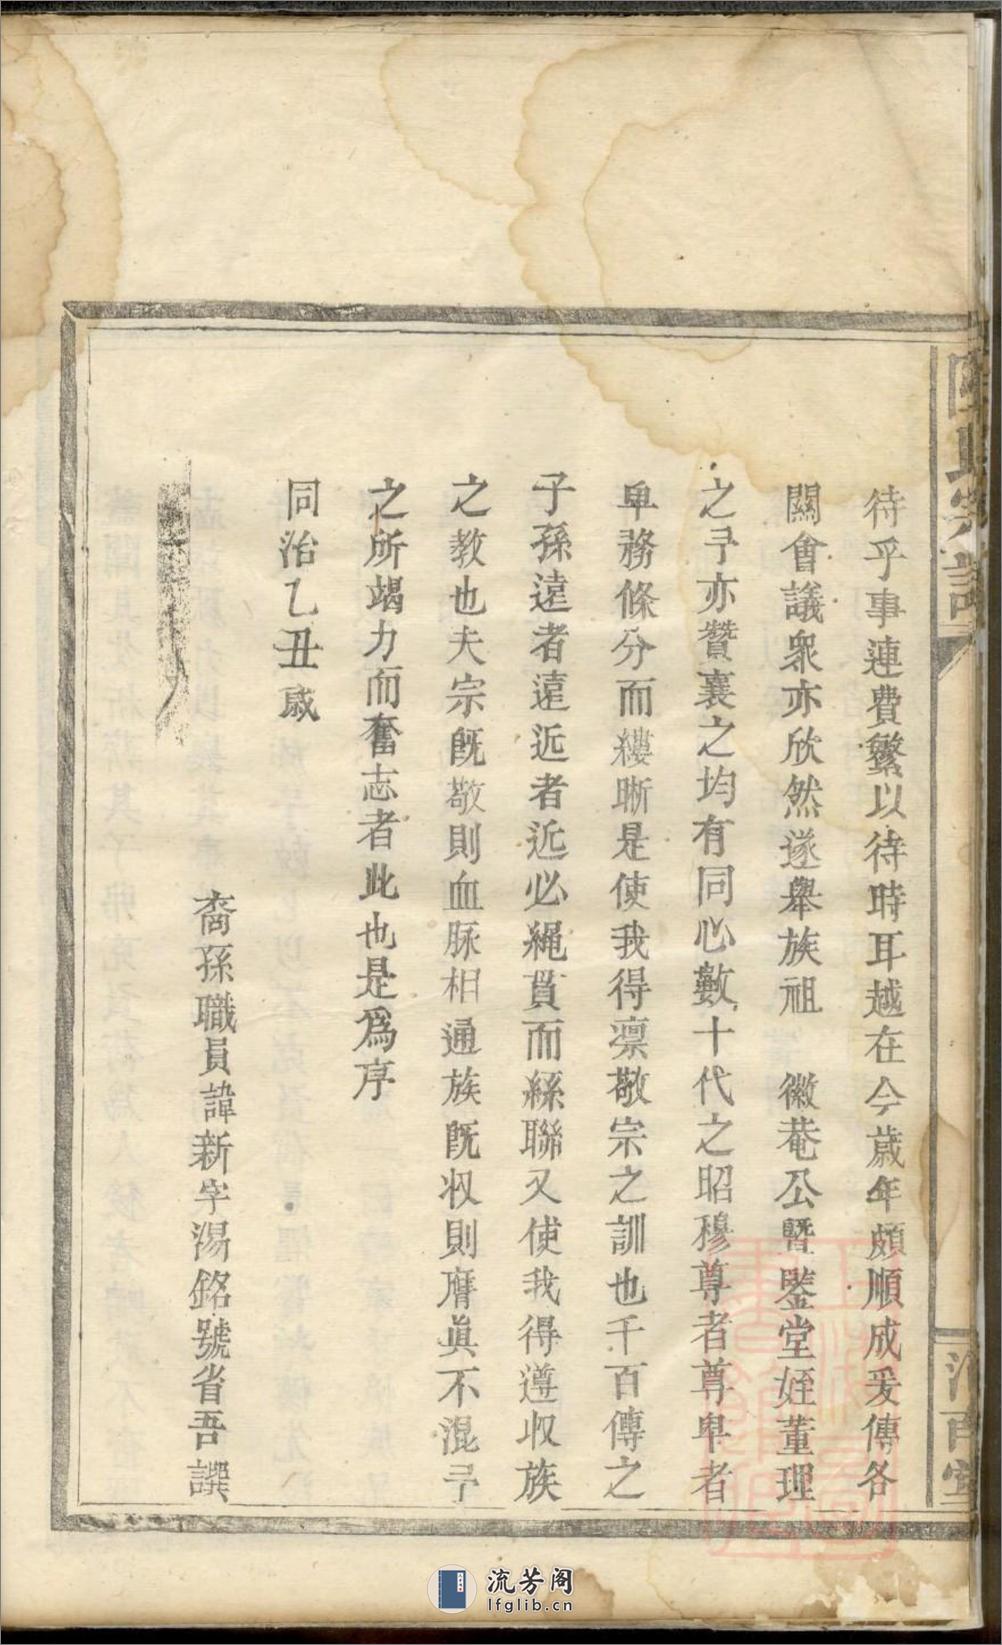 待乎事連費繁以待時耳越在今歲年頗順成爰傳各
關會議衆亦欣然遂舉族祖　徽菴公曁鑒堂姪董理
之予亦贊襄之均有同心數十代之昭穆尊者尊卑者
卑務條分而縷晰是使我得凛敬宗之訓也千百傳之
子孫遠者遠近者近必繩貫而絲聯又使我得遵收族
之教也夫宗旣敬則血脉相通族旣收則贗眞不混予
之所竭力而奮志者此也是爲序
同治乙丑歲
裔孫職員諱新字湯銘號省吾譔
氏宗譜
流芳阁
lfglib.cn